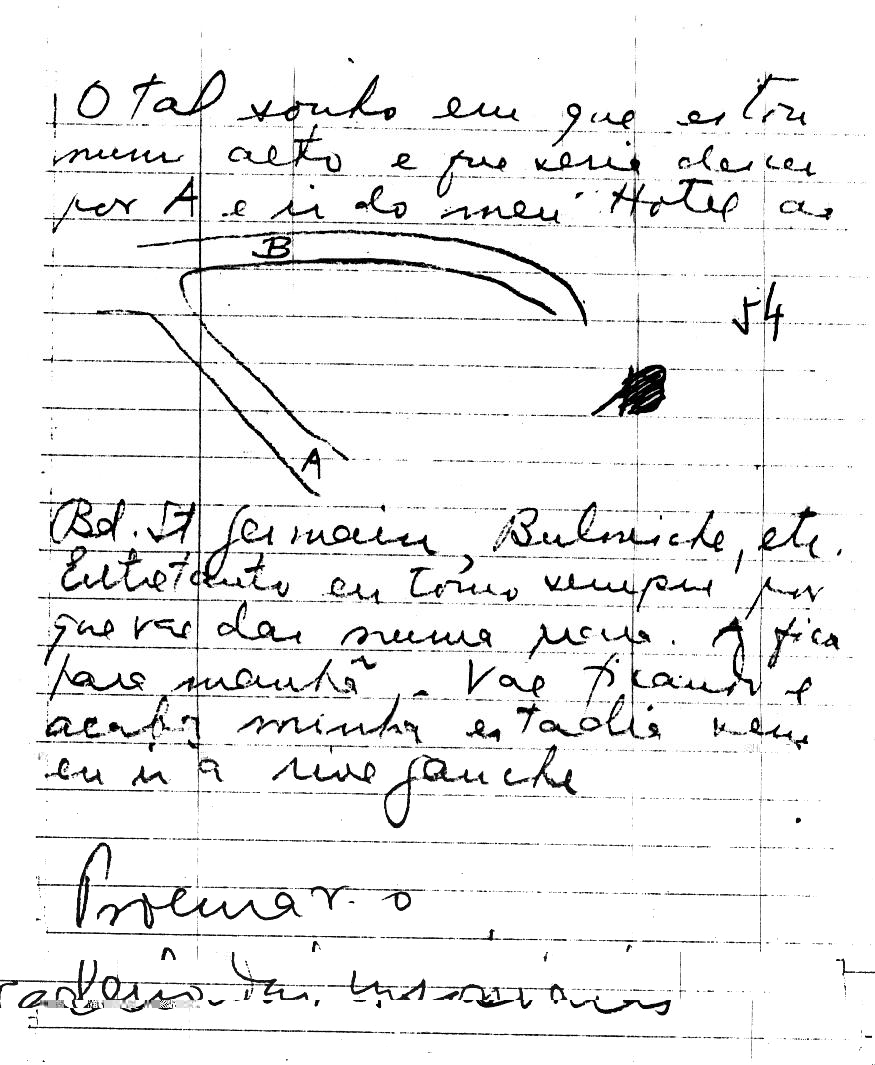 O tal sonho em que estou
num alto e que seria descer
por A e ir do meu Hotel ao
B
54
A
Bd. St Germain, Bulmiche, etc.
Entretanto eu tomo sempre por
que vae dar numa . A fica
para manhã. Vae ficando e
acaba minha estadia sem
eu ir à rive gauche
Procurar o
das insonias